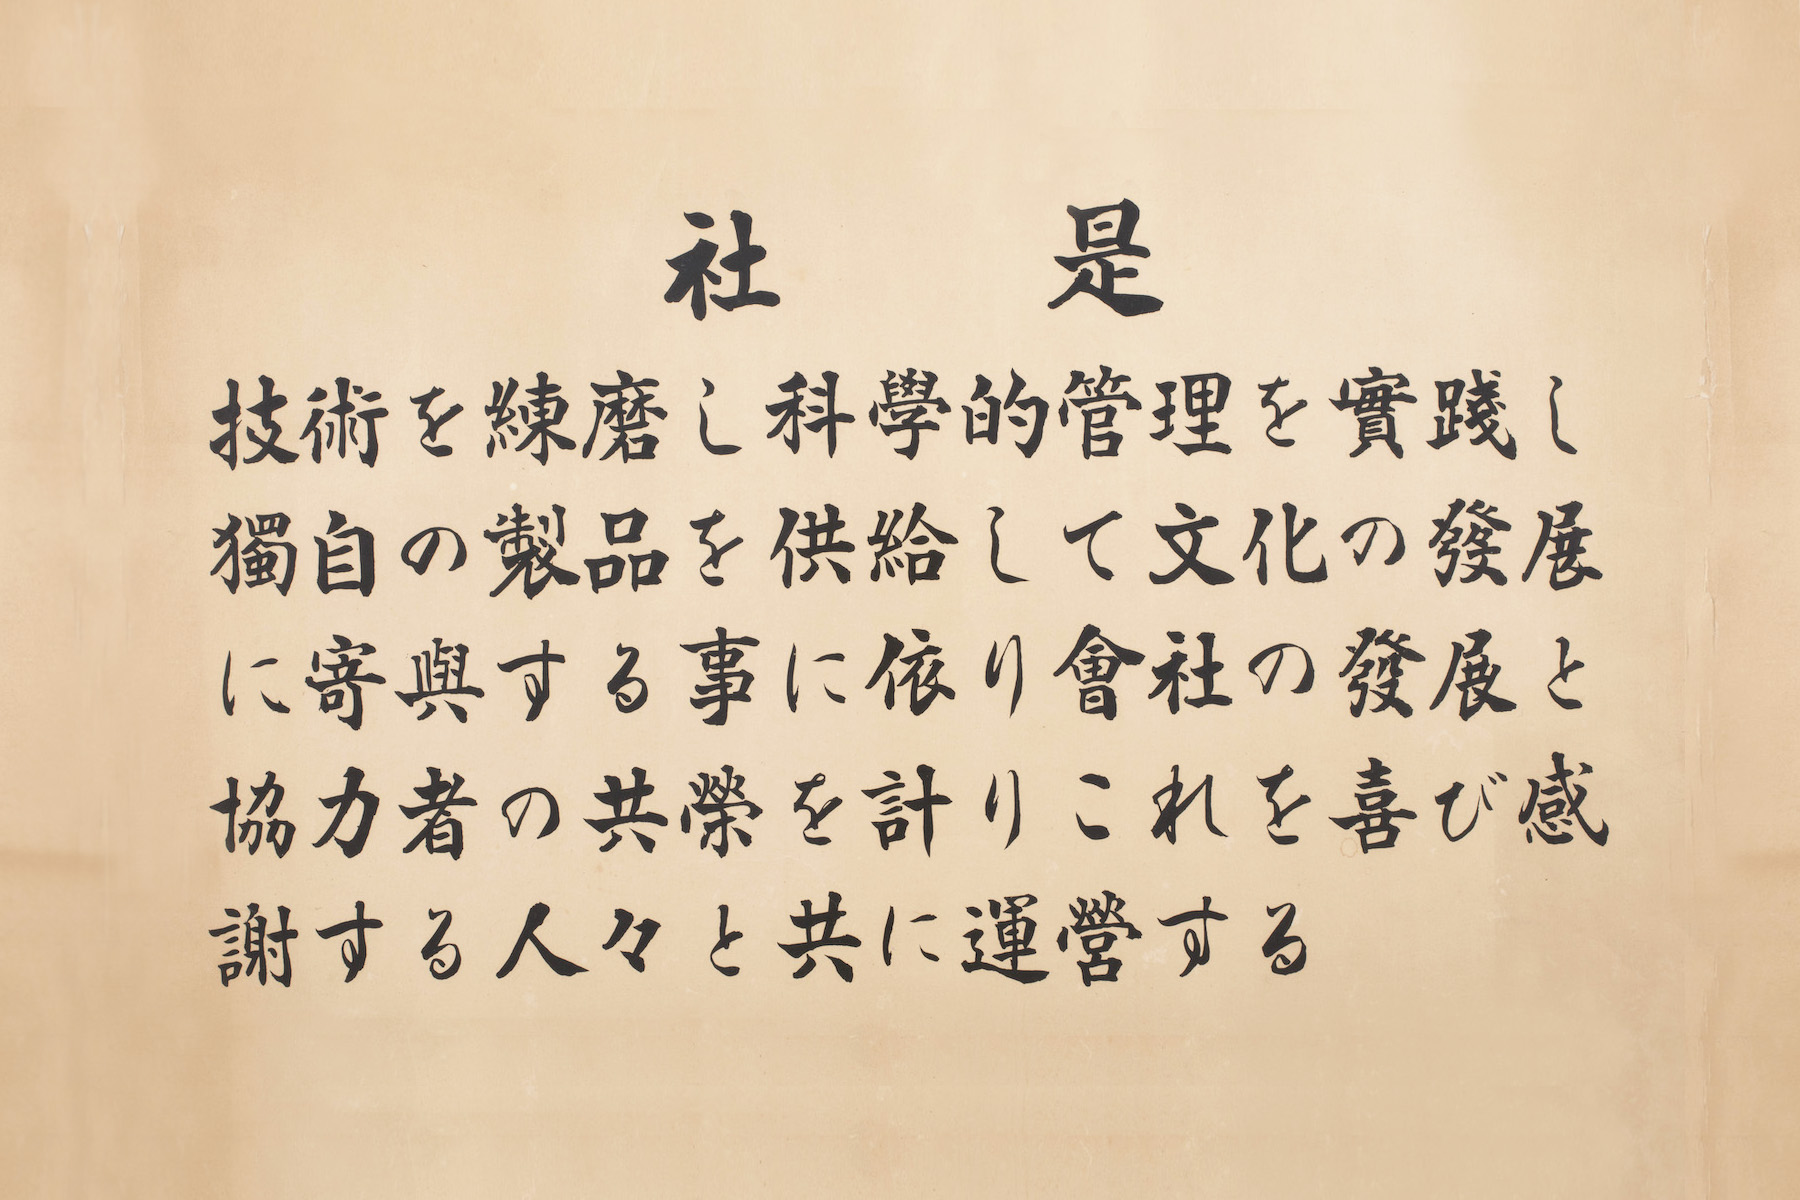 社是
技術を練磨し科學的管理を實践し
獨自の製品を供給して文化の發展
に寄與する事に依り會社の發展と
協力者の共榮を計りこれを喜び感
謝する人々と共に運營する